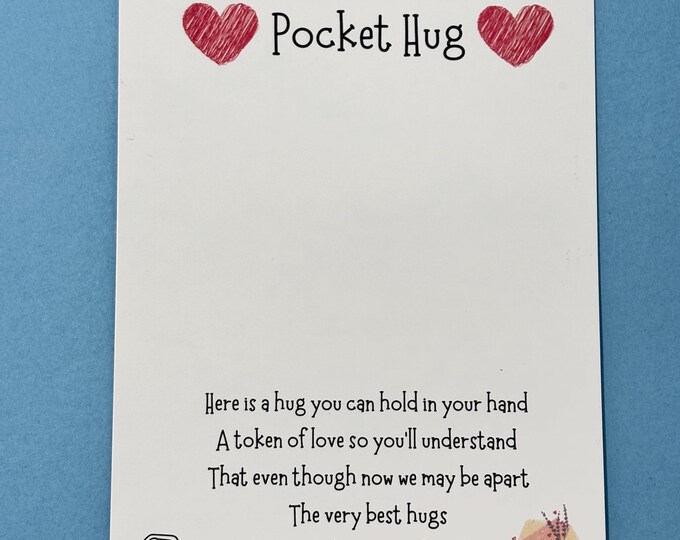 Pocket Hug
Here is a hug you can hold in your hand
A token of love so you'll understand
That even though now we may be apart
The very best hugs